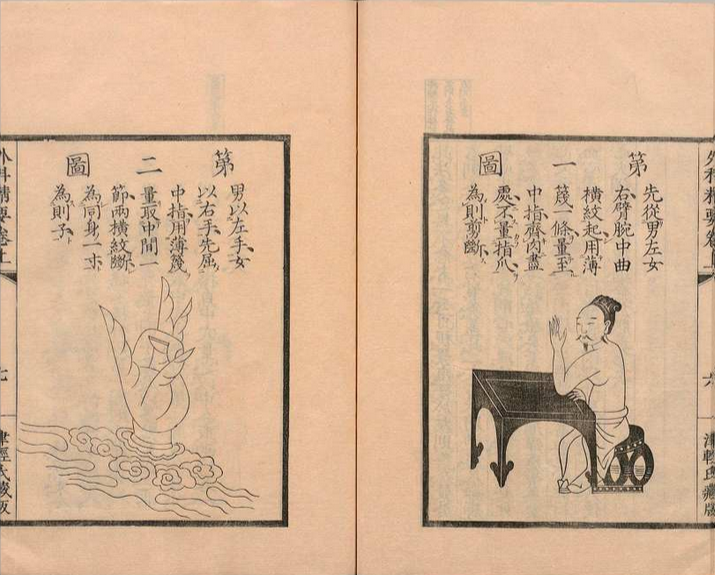 外科精要卷
六
津輕氏藏版
第一圖
先從男左女
右臂腕中曲
橫紋起用薄
篾一條量至
中指齊肉盡
處不量指爪
為則剪斷
第二圖
男以左手女
以右手先屈
中指用薄篾
量取中間一
節兩橫紋斷
為同身一寸
為則子
外科精要卷
七
津輕氏藏版